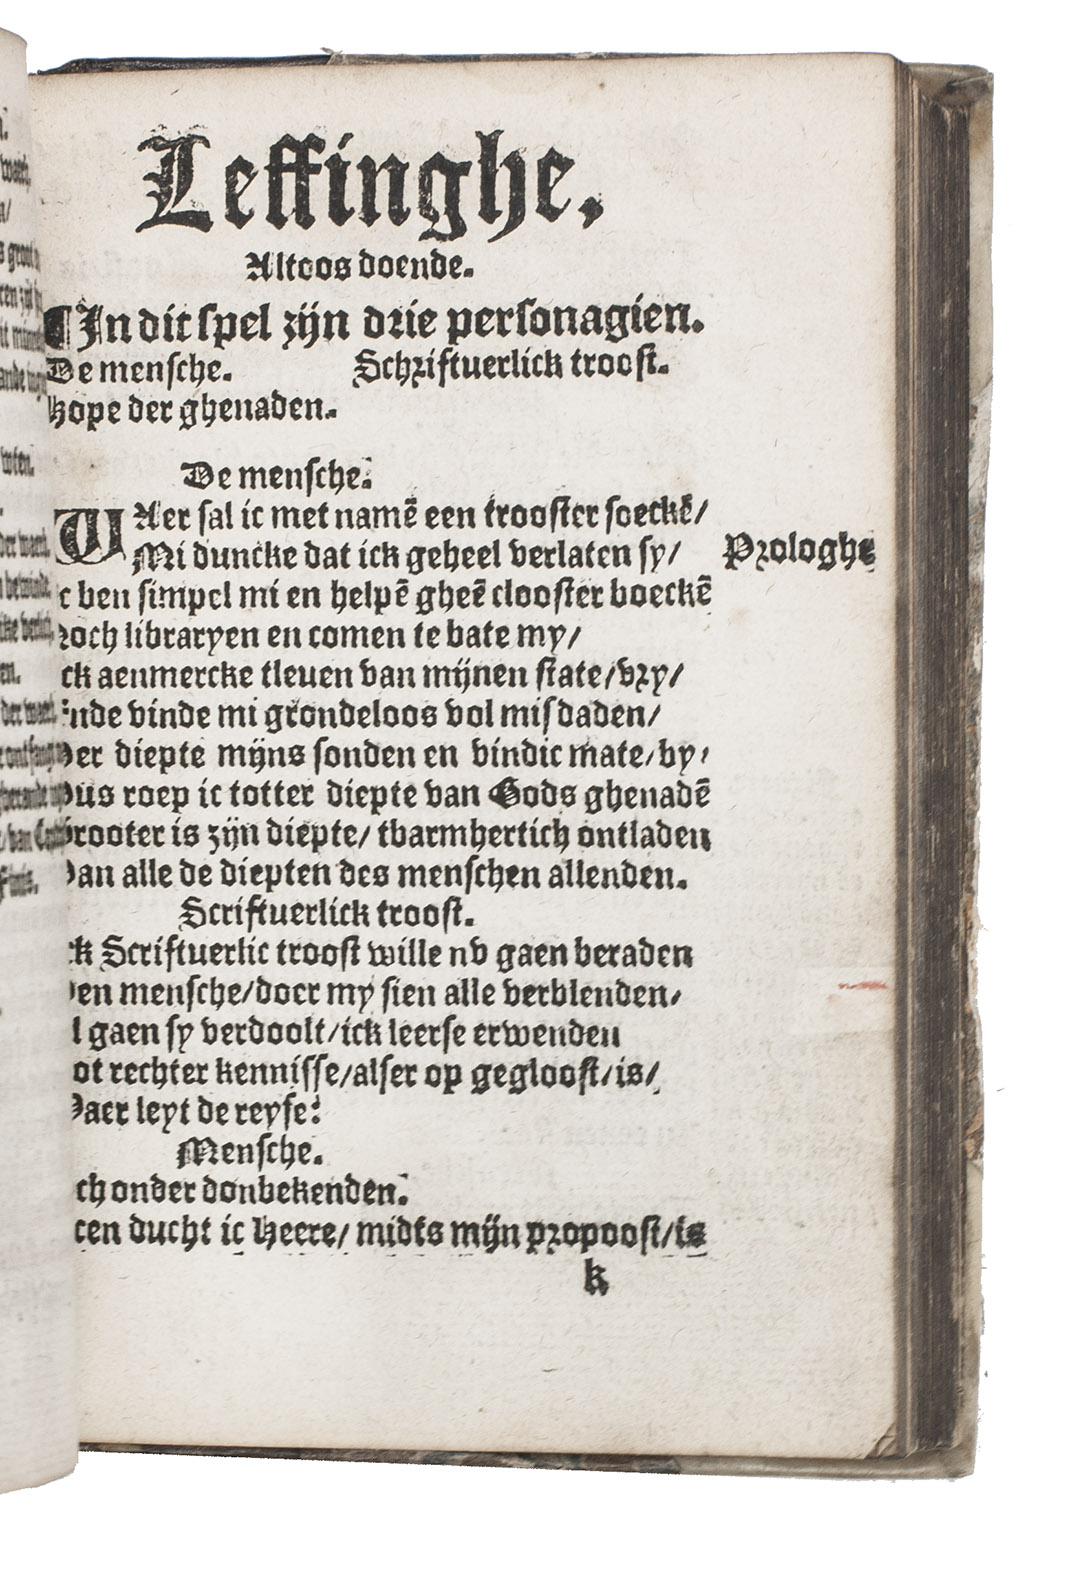 Leffinghe.
Altoos doende.
¶ In dit spel zijn drie personagien.
De mensche. Schriftuerlick troost.
Hope der ghenaden.
De mensche.
WAer sal ic met namē een trooster soeckē/
Mi duncke dat ick geheel verlaten sy/
Prologhe
c ben simpel mi en helpē gheē clooster boeckē
Noch libraryen en comen te bate my/
ck aenmercke tleuen van mijnen state/vry/
Ende vinde mi grondeloos vol misdaden/
Der diepte mijns sonden en vindic mate/by/
Dus roep ic totter diepte van Gods ghenadē
Grooter is zijn diepte/ tbarmhertich ontladen
Dan alle de diepten des menschen allenden.
Scriftuerlick troost.
ck Scriftuerlic troost wille nv gaen beraden
Den mensche/doer my sien alle verblenden/
l gaen sy verdoolt/ick leerse erwenden
ot rechter kennisse/alser op gegloost/is/
Daer leyt de reyse:
Mensche.
ch onder donbekenden.
cen ducht ic Heere/ midts mijn propoost/is
k